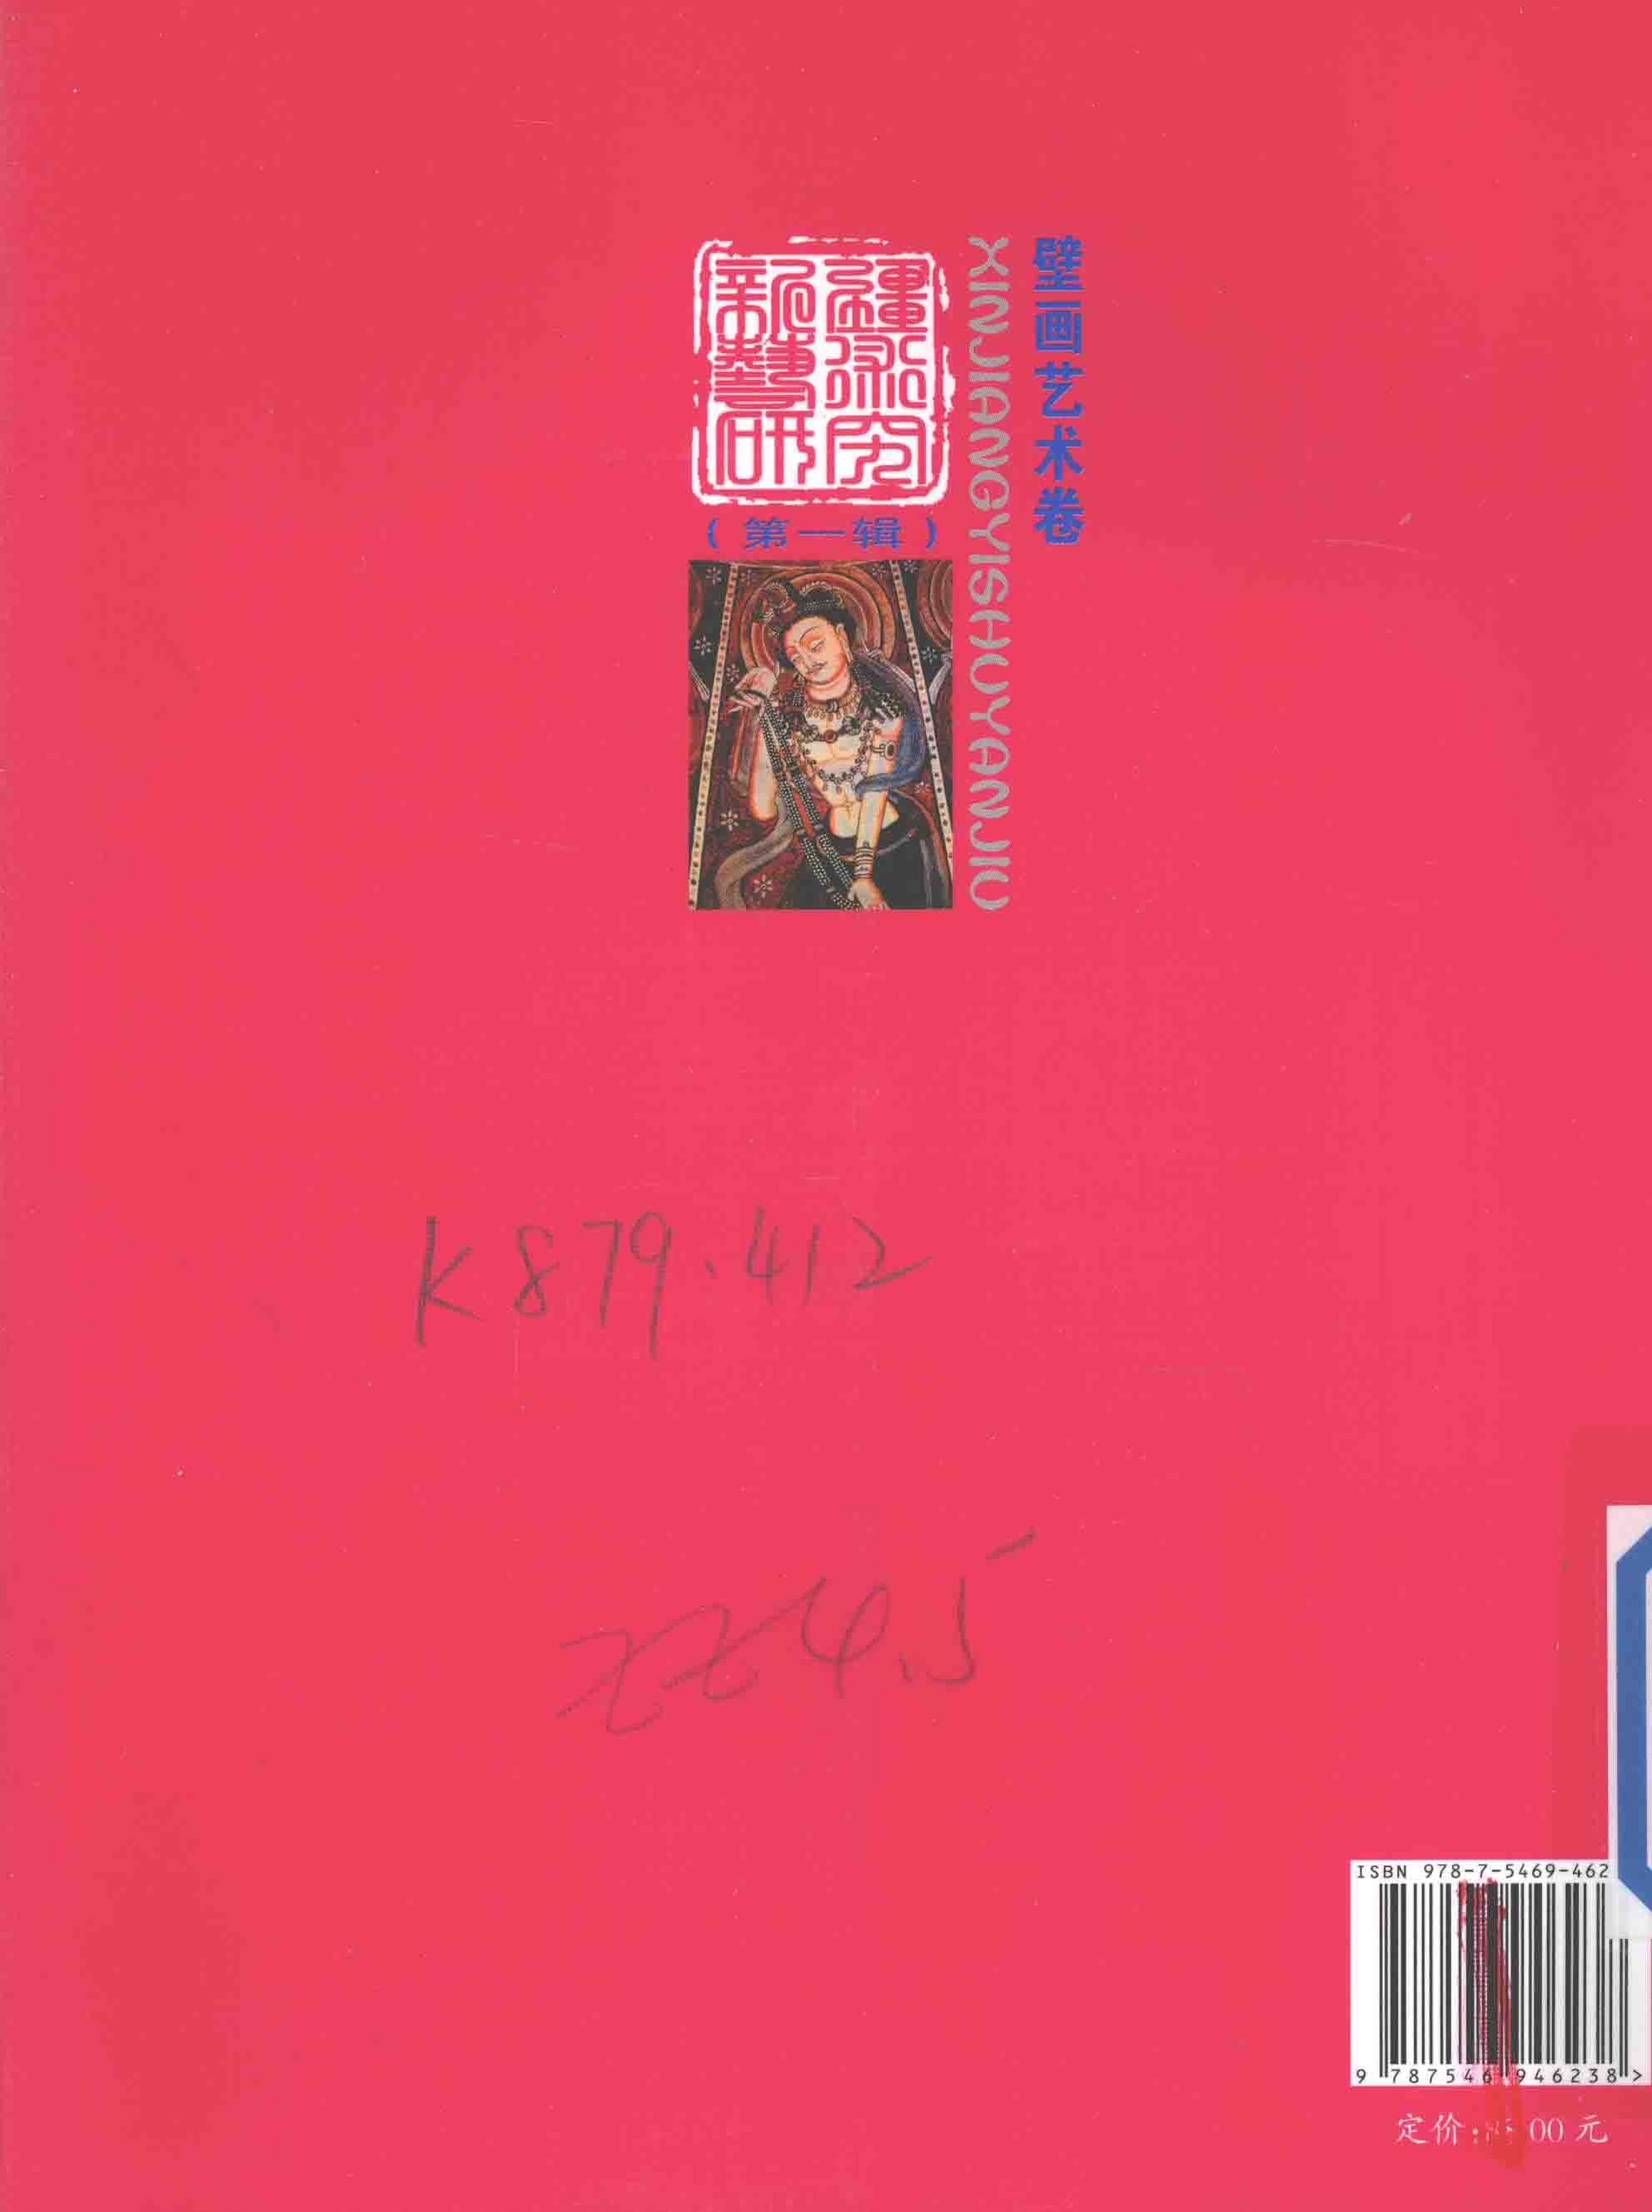 新疆
藝術
研究
(第一辑)
XINJIANGYISHUYANJIU
壁画艺术卷
K879.412
ISBN 978-7-5469-462
9 787546 946238 >
定价: 00 元